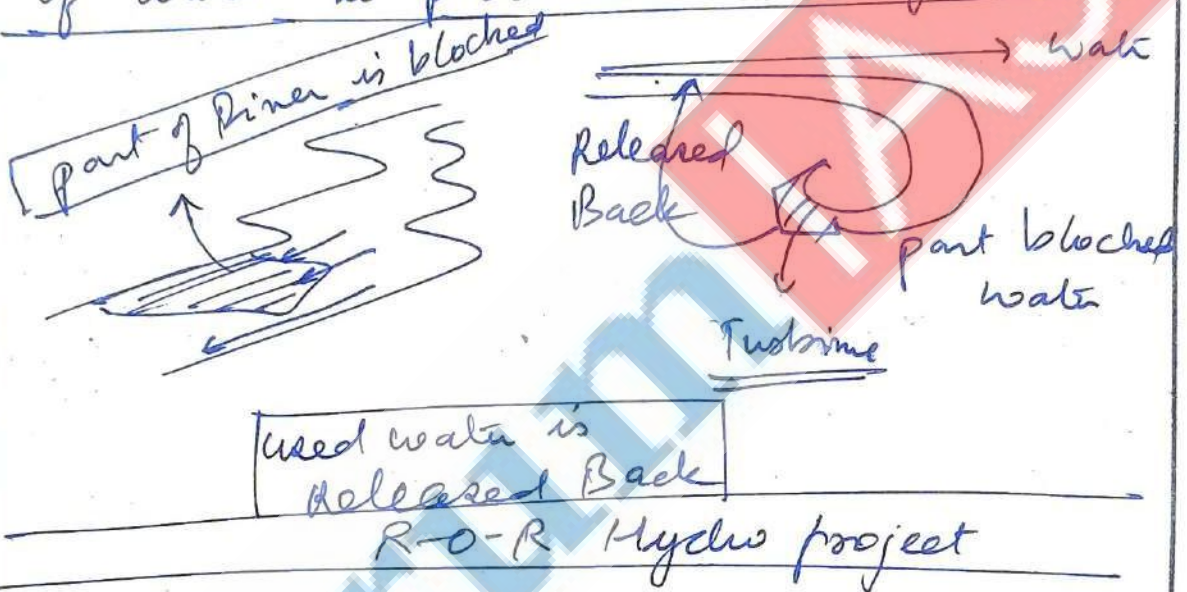 part of River is blocked
water
Released
Back
part blocked
water
Turbine
used water is
Released Back
R-O-R Hydro project
rum IAS